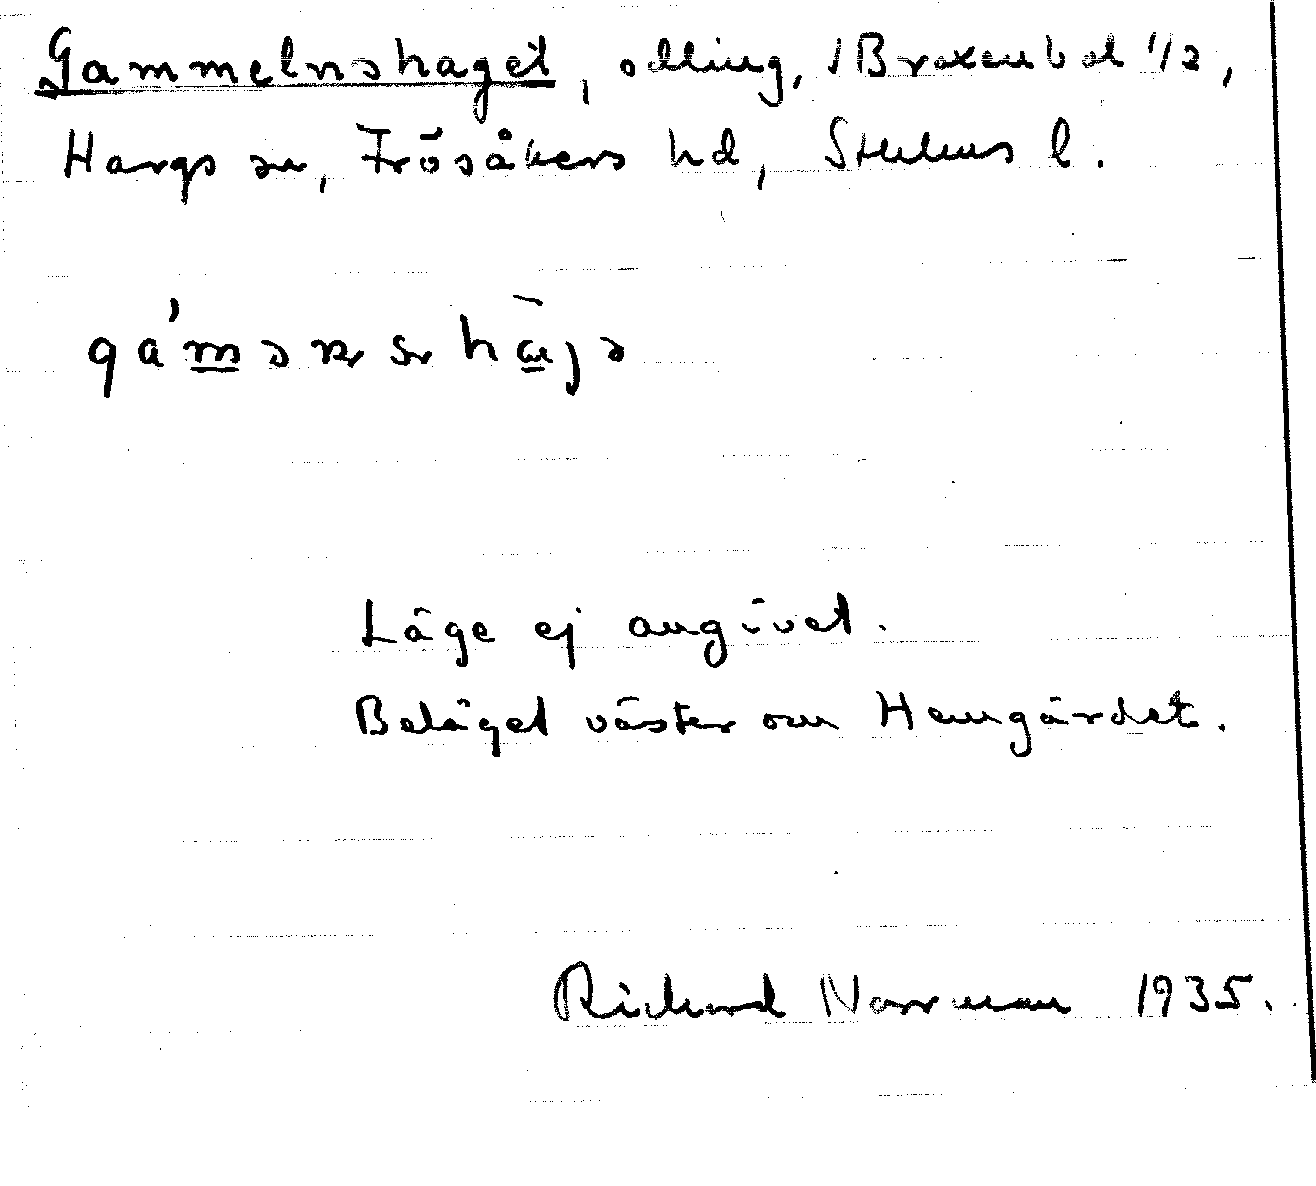 Gammelnshaget, odling, Broxenbol 1/2,
Hargs sn, Frösåkers hd, Sthlms l.
Läge ej angivet.
Beläget väster om Hemgärdet.
Richard Norrman 1935.